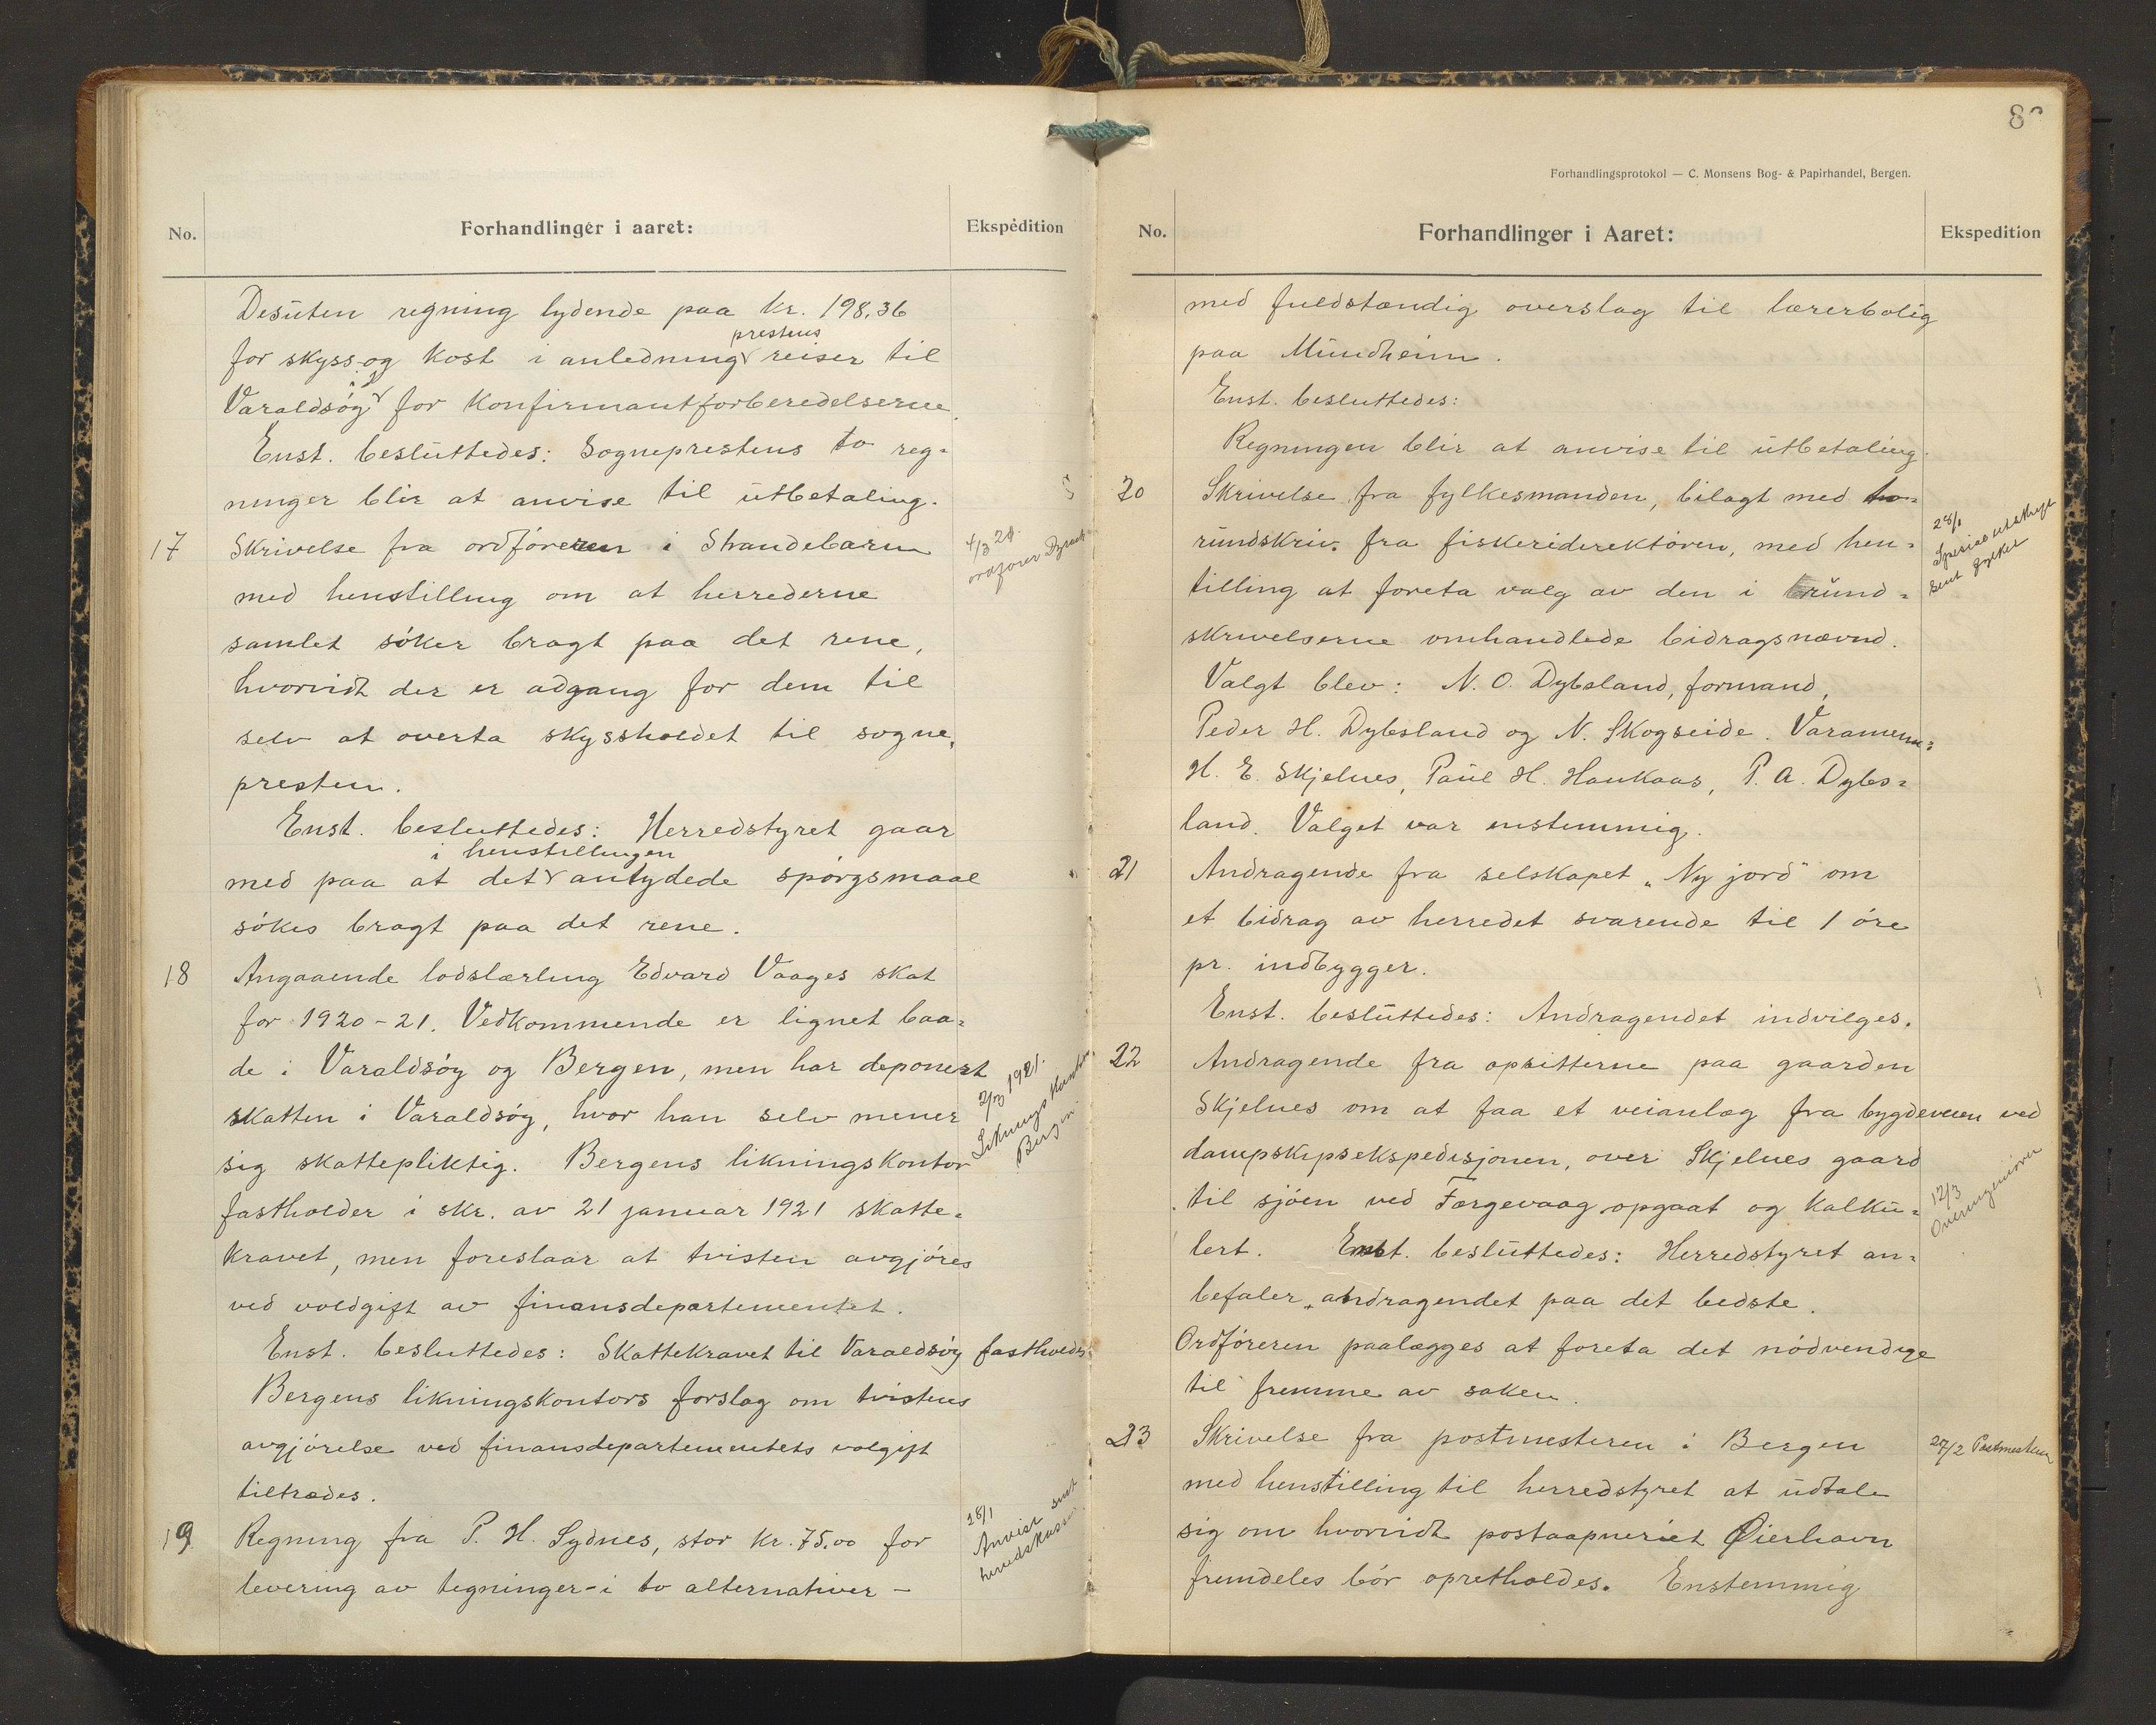 No.
Forhandlinger i aaret:
Ekspedition
Desuten regning lydende paa kr. 198.36
prestens
for skyss og kost i anledning reiser til
Varaldsöy for konfirmantforberedelserne.
Enst. besluttedes: Sogneprestens to reg-
ninger blir at anvise til utbetaling.
17
Skrivelse fra ordföreren i Strandebarm
4/3 21.
ordfører
med henstilling om at herrederne
samlet söker bragt paa det rene,
hvorvidt der er adgang for dem til
selv at overta skyssholdet til sogne-
presten.
Enst. besluttedes: Herredstyret gaar
i henstillingen
med paa at det antydede spörgsmaal
sökes bragt paa det rene.
18
Angaaende lodslærling Edvard Vaages skat
for 1920-21. Vedkommende er lignet baa-
de i Varaldsöy og Bergen, men har deponert
skatten i Varaldsöy, hvor han selv mener
2/3 1921.
Likningskontor
Bergen.
sig skattepliktig. Bergens likningskontor
fastholder i skr. av 21 januar 1921 skatte-
kravet, men foreslaar at tvisten avgjöres
ved voldgift av finansdepartementet.
Enst. besluttedes: Skattekravet til Varaldsöy fastholdes.
Bergens likningskontors forslag om tvistens
avgjörelse ved finansdepartementets volgift
tiltrædes.
19
Regning fra P. H. Sydnes, stor kr. 75.00 for
28/1
Anvist sendt
herredskassen
levering av tegninger - i to alternativer -
8
Forhandlingsprotokol — C. Monsens Bog- & Papirhandel, Bergen.
No.
Forhandlinger i Aaret:
Ekspedition
med fuldstændig overslag til lærerbolig
paa Mundheim.
Enst. besluttedes:
Regningen blir at anvise til utbetaling.
20
Skrivelse fra fylkesmanden, bilagt med to
rundskriv. fra fiskeridirektören, med hen-
28/1
Spesialutskrift
sent fylket
tilling at foreta valg av den i rund-
skrivelserne omhandlede bidragsnævnd.
Valgt blev: N. O. Dybsland, formand,
Peder H. Dybsland og N. Skogseide. Varamenn:
H. E. Skjelnes, Paul H. Haukaas, P. A. Dybs-
land. Valget var enstemmig.
21
Andragende fra selskapet „Ny jord" om
et bidrag av herredet svarende til 1 öre
pr. indbygger.
Enst. besluttedes: Andragendet indvilges.
22
Andragende fra opsitterne paa gaarden
Skjelnes om at faa et veianlæg fra bygdeveien ved
dampskipsekspedisjonen, over Skjelnes gaard
til sjöen ved Færgevaag opgaat og kalku-
12/3
Overingeniøren
lert. Enst. besluttedes: Herredstyret an-
befaler andragendet paa det bedste.
Ordföreren paalægges at foreta det nödvendige
til fremme av saken.
23
Skrivelse fra postmesteren i Bergen
27/2 Postmesteren
med henstilling til herredstyret at udtale
sig om hvorvidt postaapneriet Øierhavn
fremdeles bör opretholdes. Enstemmig